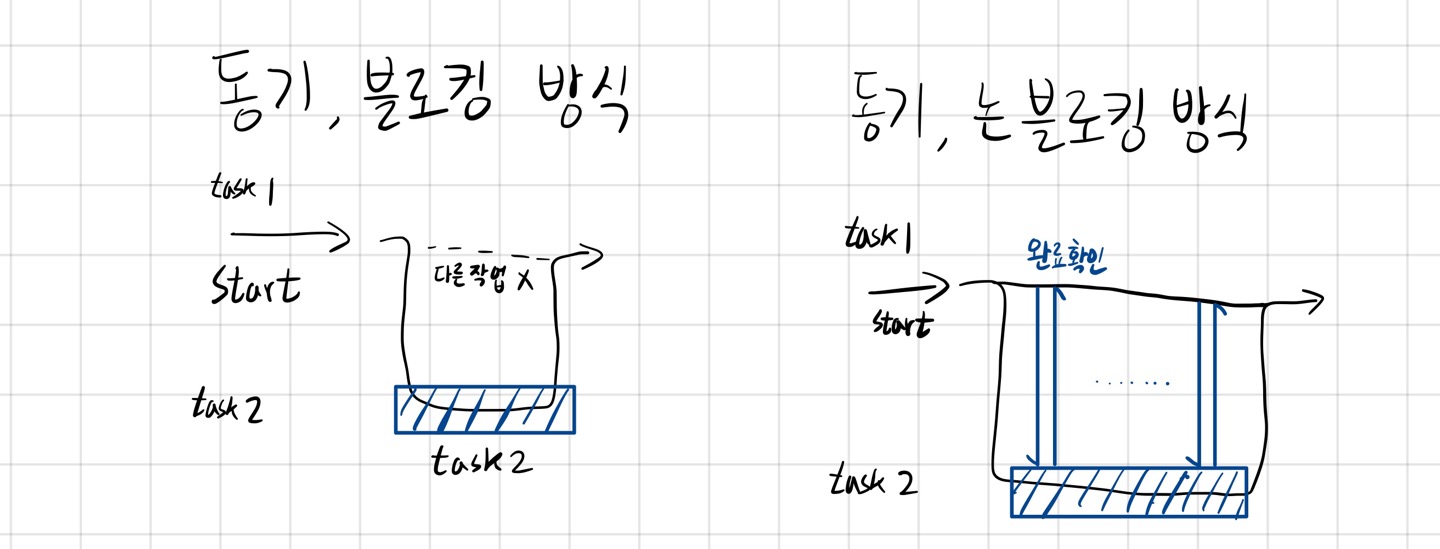 동기, 블로킹 방식
task 1
start
다른작업 X
task 2
task 2
동기, 논블로킹 방식
task 1
완료확인
start
.......
task 2